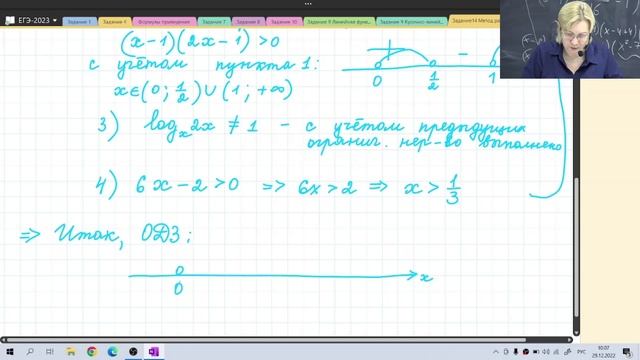 ЕГЭ-2023
Задание 1
Задание 4
Формулы приведения
Задание 5
Задание 6
Задание 7
Задание 8
Задание 10
Задание 9 Линейная функ...
Задание 9 Кусочно-линей...
Задание14 Метод ра
(x-1)(2x-1)>0
с учётом пункта 1:
0 1/2 1
x∈(0; 1/2)∪(1; +∞)
3) log_x 2x ≠ 1 - с учётом предыдущих
огранич. нер-во выполнено
4) 6x-2>0 => 6x>2 => x>1/3
=> Итак, ОДЗ:
0
x
РУС
10:07
29.12.2022